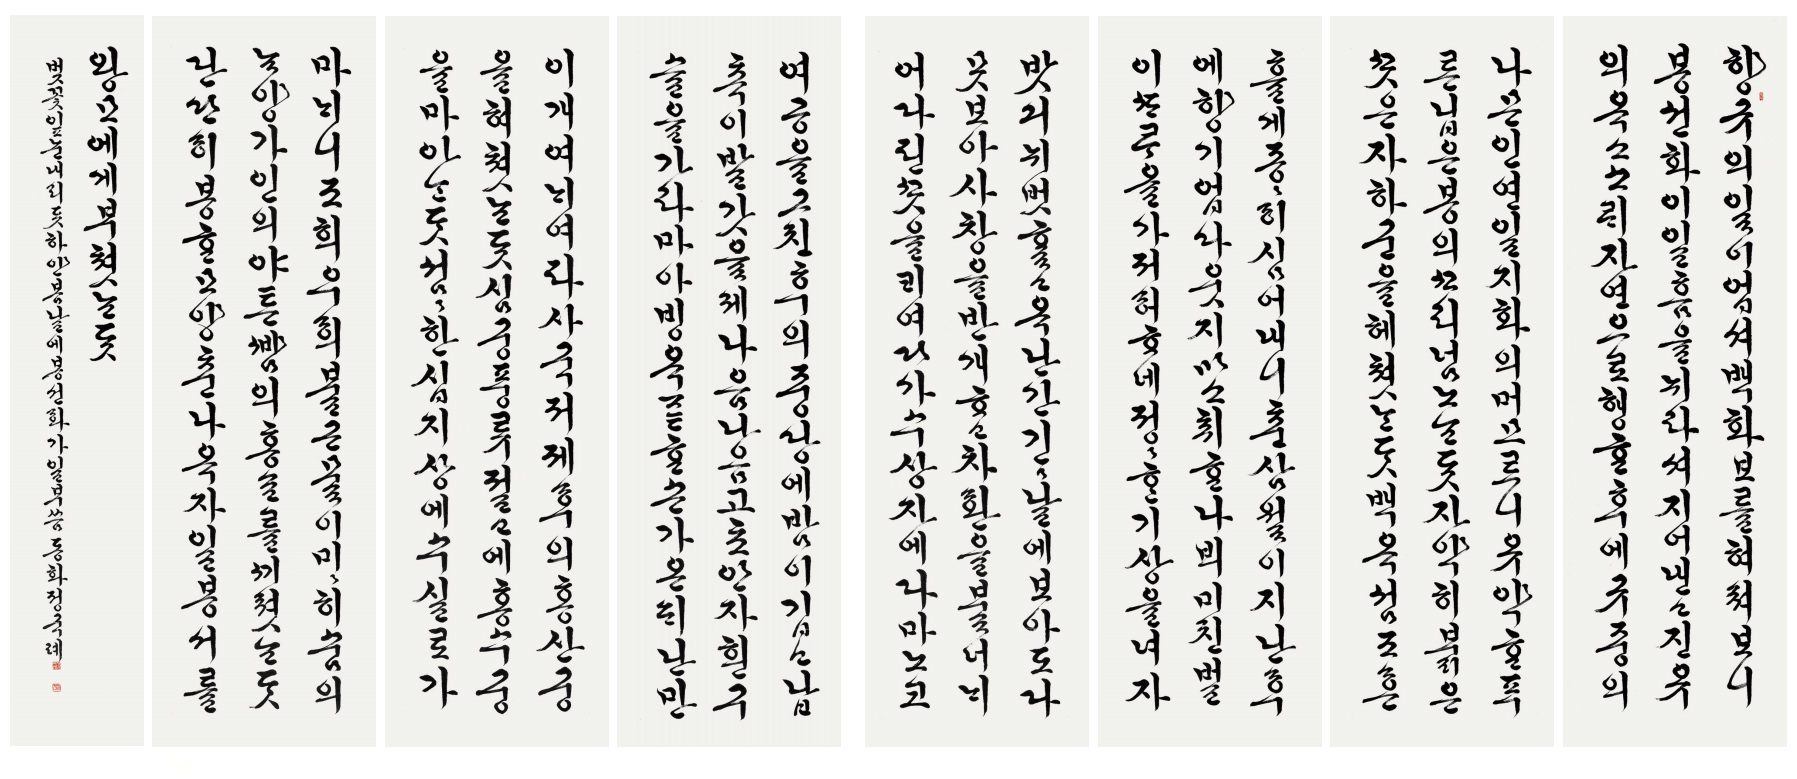 향규의일이업셔백화보를혀쳐보니
봉션화이일홈을뉘라셔지어낸고진유
의옥소소리자연으로행한후에규중의
나믄인연일지화의머므르니유약한푸
른닙은봉의꼬리넘노는듯자약히붉은
꽃은자하군을헤쳣는듯백옥섬조흔
흙게종종히심어내니춘삼월이지난후
에향기업다웃지마소취한나븨미친벌
이따를가저허하네정정한기상을녀자
밧긔뉘벗할고옥난간긴긴날에보아도다
못보아사창을반개하고차환을불너내
어다핀꽃을캐여다가수상자에다마노코
여공을그친후의중당에밤이깁고납
촉이밝갓을제나음나음고초안자흰구
슬을가라마아빙옥갓흔손가온대난만
이개여내여파사국저제후의홍산궁
을혀쳣는듯심궁풍류절고에홍수궁
을마아는듯섬섬한십지상에수실로가
마내니조희우희불근물이미미히숨의
는양가인의야튼뺨의홍노를끼쳣는듯
긴단히봉한모양춘나옥자일봉셔를
왕모에게부쳣는듯
벚꽃잎눈내리듯하얀봄날에봉선화가일부씀 동화정국례